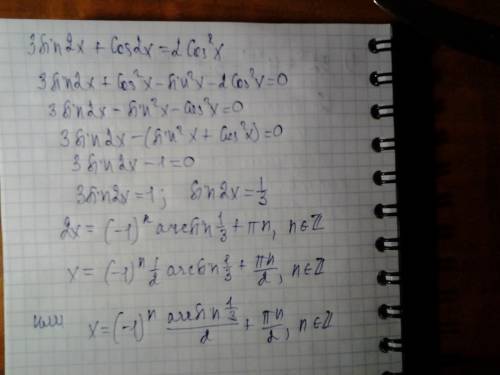 3sin2x + cos2x = 2cos²x
3sin2x + cos²x - sin²x - 2cos²x = 0
3sin2x - sin²x - cos²x = 0
3sin2x - (sin²x + cos²x) = 0
3sin2x - 1 = 0
3sin2x = 1; sin2x = 1/3
2x = (-1)ⁿ arcsin 1/3 + πn, n∈ℤ
x = (-1)ⁿ 1/2 arcsin 1/3 + πn/2, n∈ℤ
или x = (-1)ⁿ (arcsin 1/3)/2 + πn/2, n∈ℤ